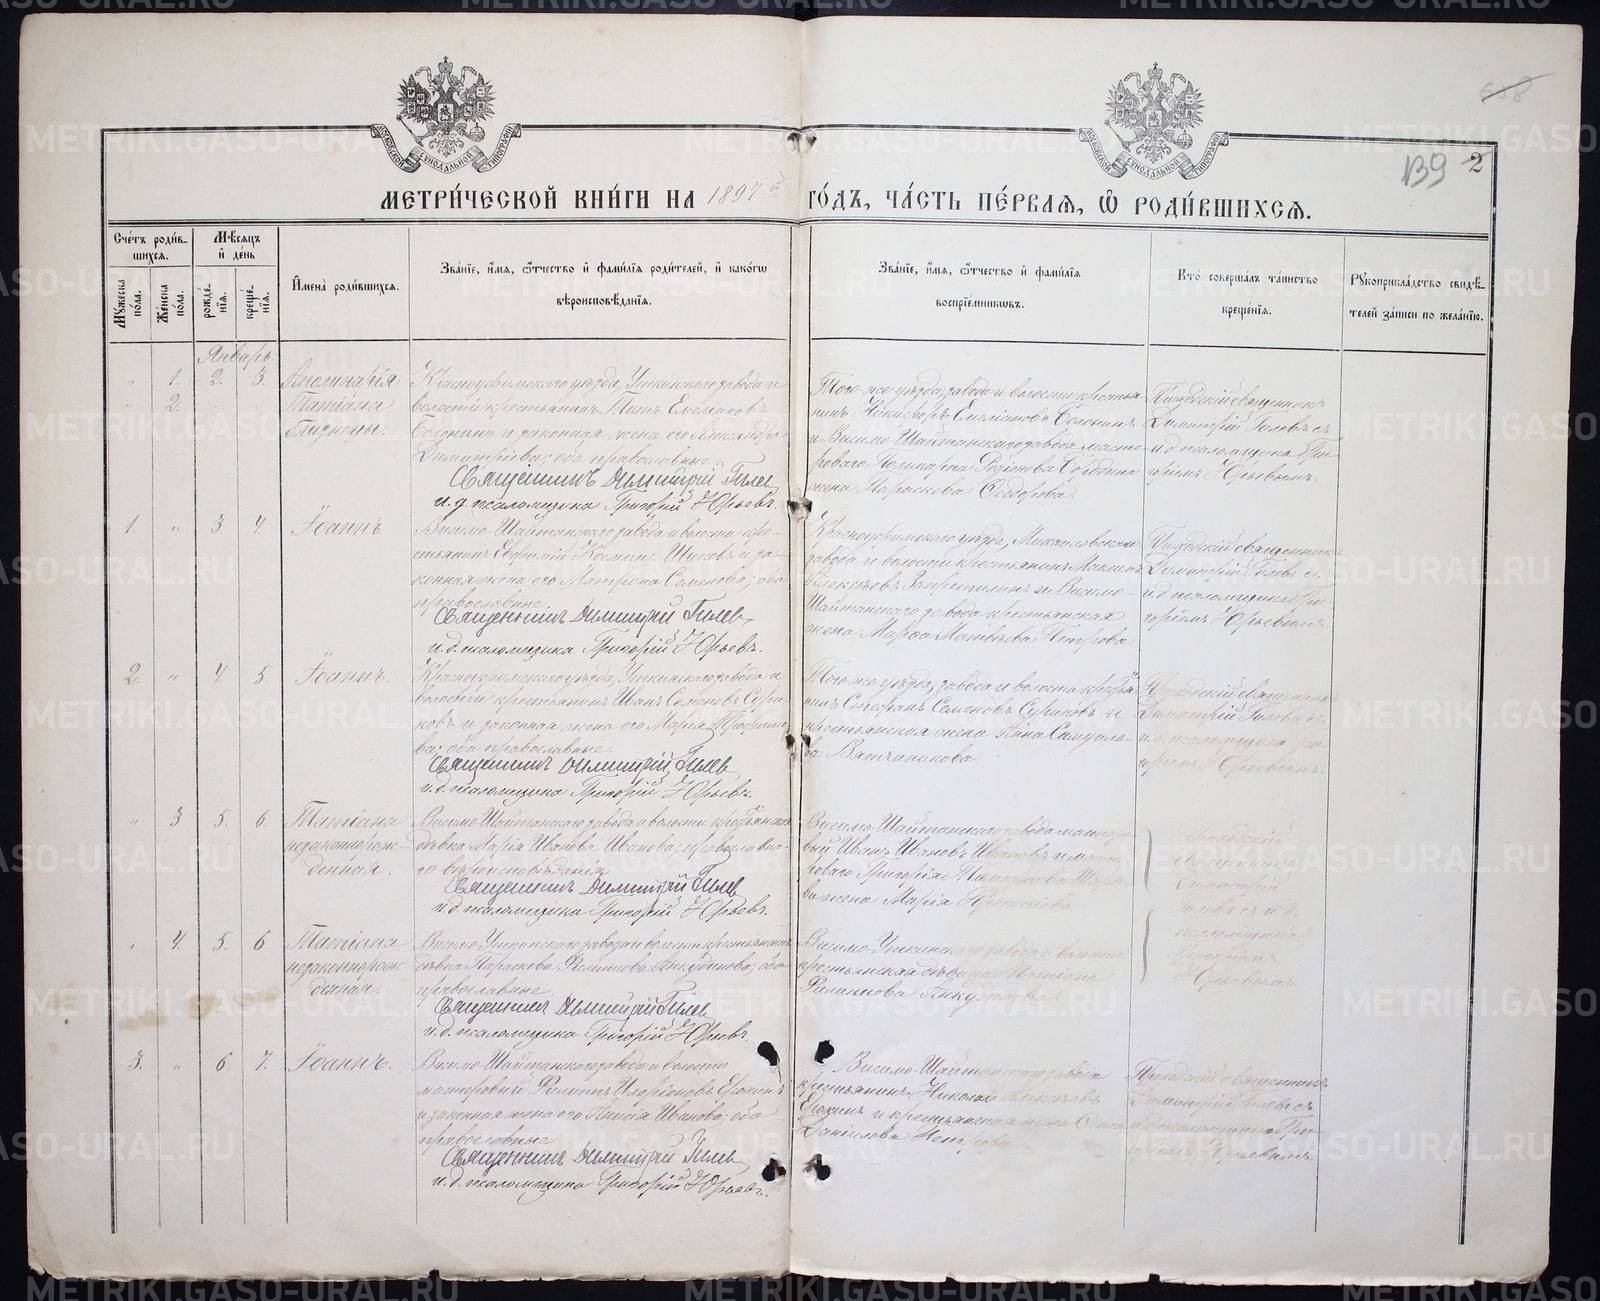 688
139 2
МОСКОВСКОЙ СУНОДАЛЬНОЙ ТИПОГРАФІИ
МОСКОВСКОЙ СУНОДАЛЬНОЙ ТИПОГРАФІИ
МЕТРИ́ЧЕСКОЙ КНИ́ГИ НА 1897й ГО́ДЪ, ЧА́СТЬ ПЕ́РВАЯ, Ѡ РОДИ́ВШИХСЯ.
Сче́тъ роди́вшихся.
Мꙋ́жеска по́ла.
Же́нска по́ла.
Мѣ́сяцъ и҆ де́нь
рожде́нїя.
креще́нїя.
И҆мена̀ роди́вшихся.
Зва́нїе, и҆́мя, ѻ҆́тчество и҆ фами́лїя роди́телей, и҆ како́гѡ вѣроисповѣ́данїя.
Зва́нїе, и҆́мя, ѻ҆́тчество и҆ фами́лїя воспрїе́мникѡвъ.
Кто̀ соверша́лъ та́инство креще́нїя.
Рꙋкоприкла́дство свидѣ́телей за́писи по жела́нїю.
Январь
" 1. 2. 3. Аполинарія
" 2. " " Татіана
Близнецы.
Красноуфимскаго уѣзда, Уткинскаго завода и
волости крестьянинъ Титъ Емеліановъ
и законная жена его Александра
Димитріева; оба православные.
Священникъ Димитрій Гилев
и.д. псаломщика Григорій Юрьевъ.
Того-же уѣзда, завода и волости крестья-
нинъ Никифоръ Емеліановъ
и Висимо-Шайтанскаго завода масте-
роваго Родіонова
жена Параскева Ѳеодорова.
Приходскій священникъ
Димитрій Гилевъ съ
и.д. псаломщика Гри-
горіемъ Юрьевымъ.
1. " 3. 4. Іоаннъ
Висимо-Шайтанскаго завода и волости кре-
стьянинъ Евфимій Козминъ и за-
конная жена его Матрона Семенова; оба
православные.
Священникъ Димитрій Гилев
и.д. псаломщика Григорій Юрьевъ.
Красноуфимскаго уѣзда, Михайловскаго
завода и волости крестьянинъ Максимъ
Алексѣевъ и Висимо-
Шайтанскаго завода крестьянская
жена Марѳа Матвѣева Петрова.
Приходскій священникъ
Димитрій Гилевъ съ
и.д. псаломщика Гри-
горіемъ Юрьевымъ.
2. " 4. 5. Іоаннъ.
Красноуфимскаго уѣзда, Уткинскаго завода и
волости крестьянинъ Иванъ Семеновъ Сури-
ковъ и законная жена его Марія Трофимо-
ва; оба православные.
Священникъ Димитрій Гилев
и.д. псаломщика Григорій Юрьевъ.
Того же уѣзда, завода и волости крестья-
нинъ Стефанъ Семеновъ Суриковъ и
крестьянская жена Анна Самуило-
ва
Приходскій священникъ
Димитрій Гилевъ съ
и.д. псаломщика Гри-
горіемъ Юрьевымъ.
" 3 5. 6 Татіана
незаконнорож-
денная.
Висимо-Шайтанскаго завода и волости крестьянская
дѣвка Марія Иванова Иванова; православна-
го вѣроисповѣданія.
Священникъ Димитрій Гилев
и.д. псаломщика Григорій Юрьевъ.
Висимо-Шайтанскаго завода мастеро-
вый Иванъ Ивановъ Ивановъ и масте-
роваго Григорія
жена Марія
Приходскій
священникъ
Димитрій
Гилевъ съ и.д.
псаломщика
Григоріемъ
Юрьевымъ.
" 4. 5. 6 Татіана
незаконнорож-
денная.
Висимо-Уткинскаго завода и волости крестьянская
дѣвка Параскева Филиппова Анкудинова; оба
православные.
Священникъ Димитрій Гилев
и.д. псаломщика Григорій Юрьевъ.
Висимо-Уткинскаго завода и волости
крестьянская дѣвица
Филиппова Анкудинова.
3. " 6 7. Іоаннъ.
Висимо-Шайтанскаго завода и волости
мастеровый Филиппъ Иларіоновъ Ерохинъ
и законная жена его Анисія Иванова; оба
православные
Священникъ Димитрій Гилев
и.д. псаломщика Григорій Юрьевъ.
Висимо-Шайтанскаго завода
крестьянинъ Николай
Ерохинъ и крестьянская жена
Даніилова Петрова.
Приходскій священникъ
Димитрій Гилевъ съ
и.д. псаломщика Гри-
горіемъ Юрьевымъ.
METRIKI.GASO-URAL.RU